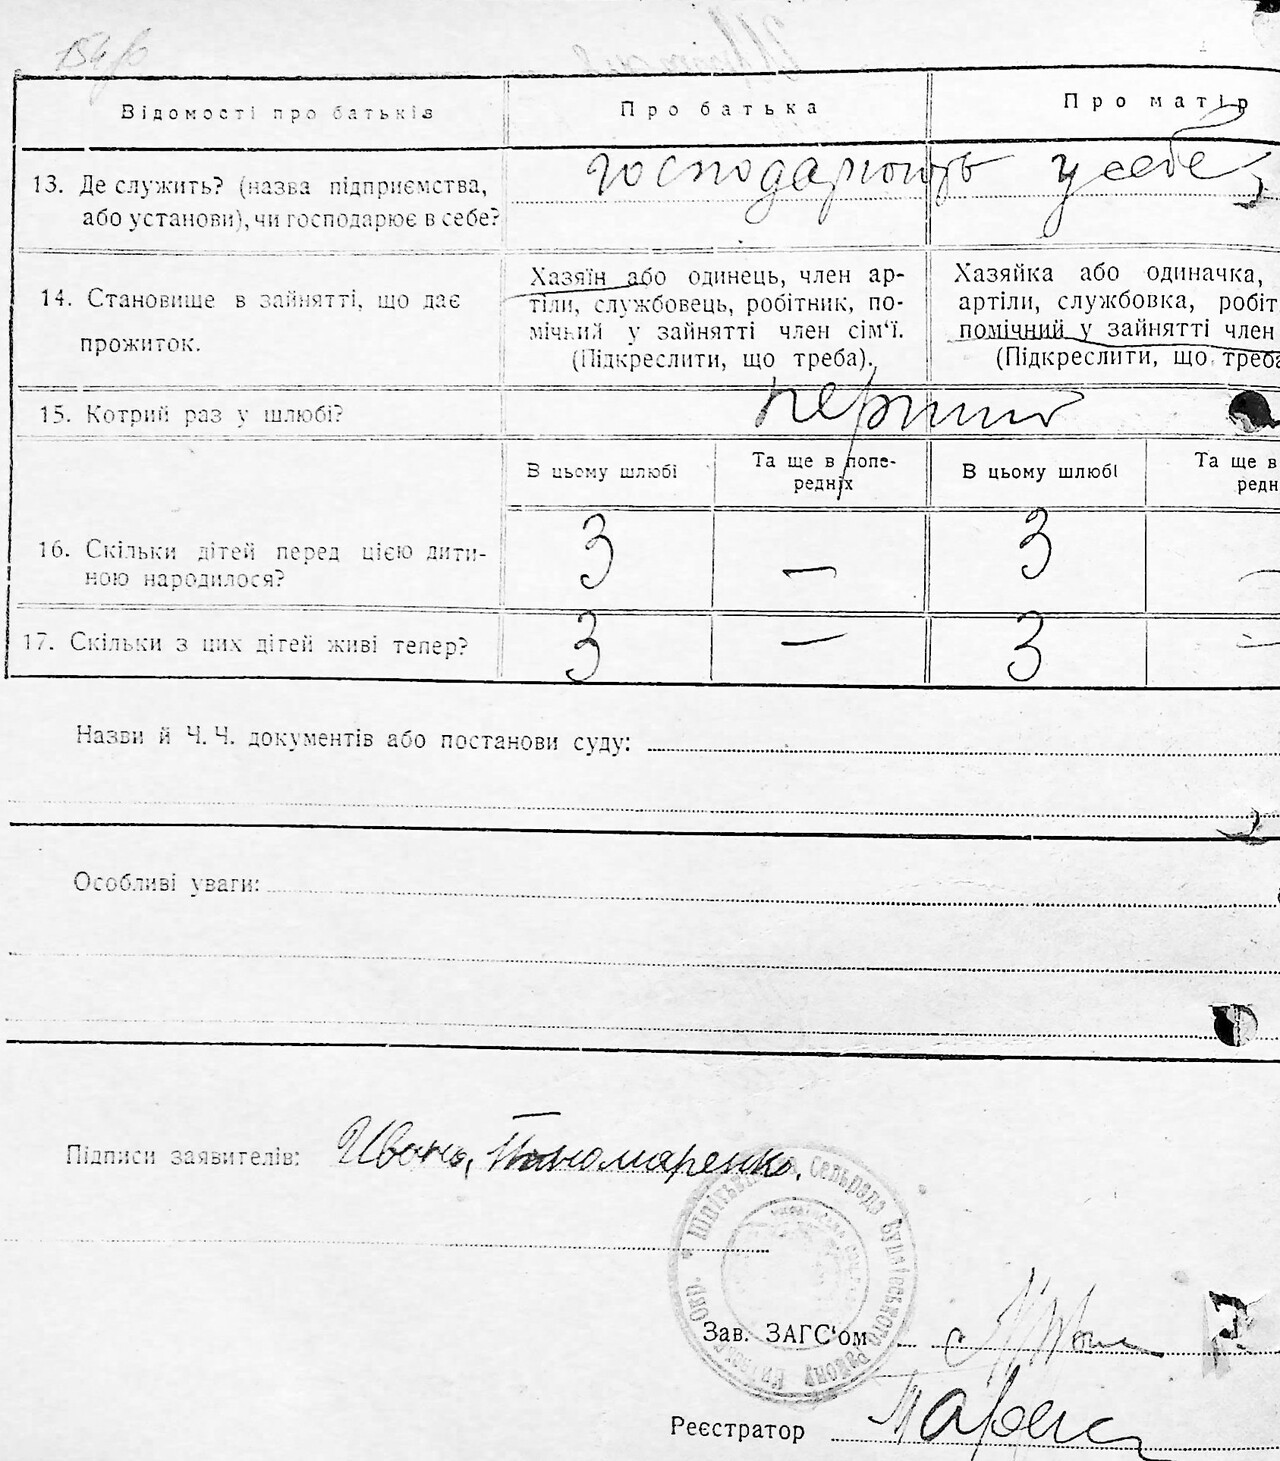 Відомості про батьків
Про батька
Про матір
13. Де служить? (назва підприємства,
або установи), чи господарює в себе?
господарюють у себе
14. Становище в зайнятті, що дає
прожиток.
Хазяїн або одинець, член ар-
тіли, службовець, робітник, по-
мічний у зайнятті член сім'ї.
(Підкреслити, що треба).
Хазяйка або одиначка,
артіли, службовка, робіт
помічний у зайнятті член
(Підкреслити, що треба
15. Котрий раз у шлюбі?
перший
В цьому шлюбі
Та ще в попе-
редніх
В цьому шлюбі
Та ще в
редн
16. Скільки дітей перед цією дити-
ною народилося?
3 — 3 —
17. Скільки з цих дітей живі тепер?
3 — 3 —
Назви й Ч. Ч. документів або постанови суду:
Особливі уваги:
Підписи заявителів: Ивань Пономаренко.
Сельрада
району
Зав. ЗАГС'ом
Реєстратор